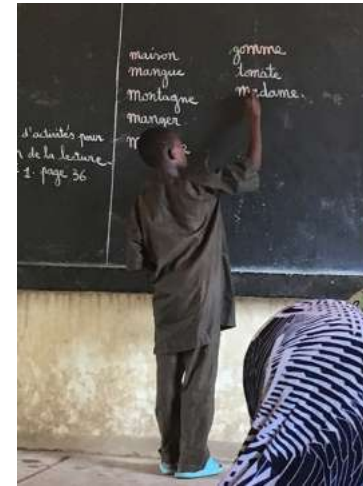 d'activités pour
de la lecture
1. page 36
maison
mangue
montagne
manger
m
gomme
tomate
madame.